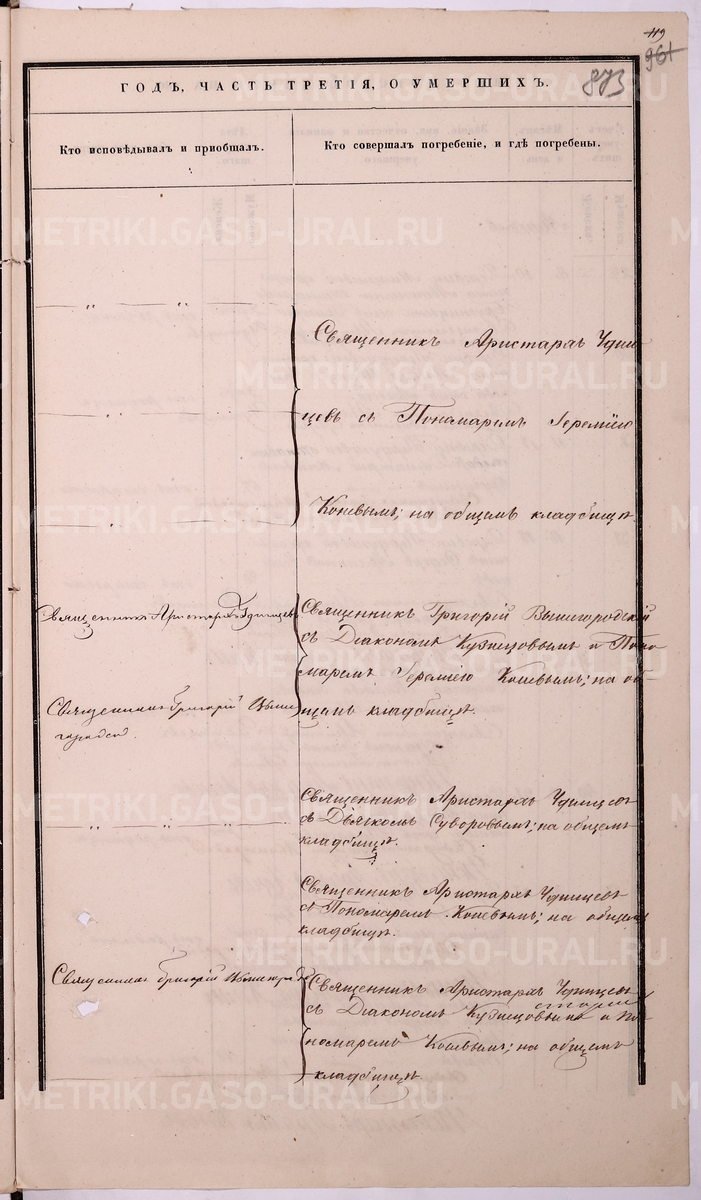 119
961
873
ГОДЪ, ЧАСТЬ ТРЕТІЯ, О УМЕРШИХЪ.
Кто исповѣдывалъ и пріобщалъ.
Кто совершалъ погребеніе, и гдѣ погребены.
METRIKI.GASO-URAL.RU
Священникъ Аристархъ Удин
цевъ съ Пономаремъ Іереміею
Коневымъ; на общемъ кладбищѣ.
Священникъ Аристархъ Удинцевъ
Священникъ Григорій Вышегородскій
съ Діакономъ Кузнецовымъ и Поно
маремъ Іереміею Коневымъ; на об
щемъ кладбищѣ.
Священникъ Григорій Выше
городск.
Священникъ Аристархъ Удинцевъ
съ Дьячкомъ Суворовымъ; на общемъ
кладбищѣ.
Священникъ Аристархъ Удинцевъ
съ Пономаремъ Коневымъ; на общемъ
кладбищѣ.
Священникъ Григорій
Священникъ Аристархъ Удинцевъ
съ Діакономъ Кузнецовымъ и По
номаремъ Коневымъ; на общемъ
кладбищѣ.